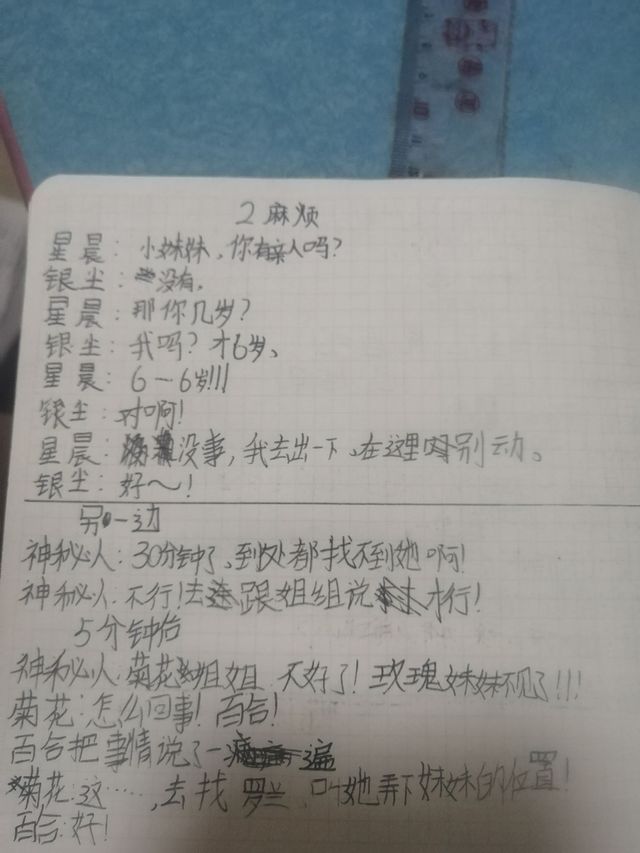 2 麻烦
星晨：小妹妹，你有亲人吗？
银尘：没有。
星晨：那你几岁？
银尘：我吗？才6岁。
星晨：6－6岁!!!
银尘：对啊！
星晨：没事，我去出一下。在这里别动。
银尘：好～！
另一边
神秘人：30分钟了，到处都找不到她啊！
神秘人：不行！去跟姐组说才行！
5分钟后
神秘人：菊花姐姐 不好了！玫瑰妹妹不见了!!!
菊花：怎么回事！百合！
百合把事情说了一遍
菊花：这……，去找罗兰，叫她弄下妹妹的位置！
百合：好！